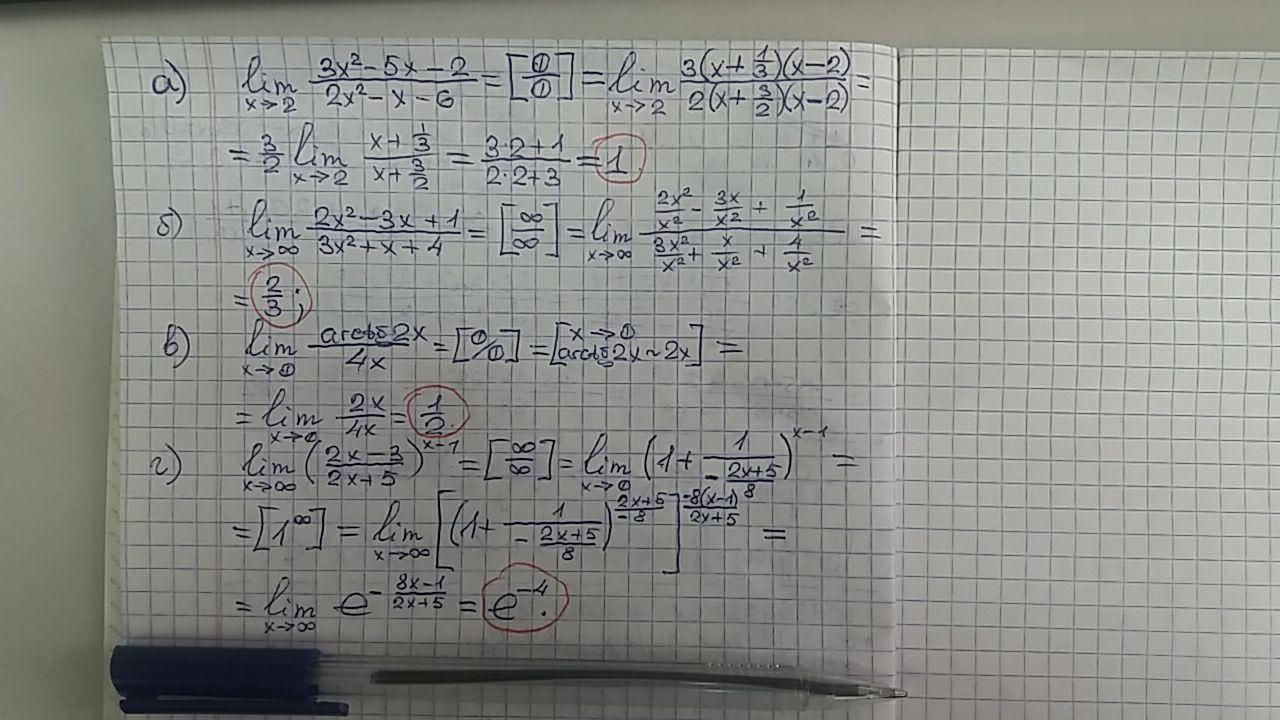 а) lim x→2 (3x²-5x-2)/(2x²-x-6) = [0/0] = lim x→2 (3(x+1/3)(x-2))/(2(x+3/2)(x-2)) =
= 3/2 lim x→2 (x+1/3)/(x+3/2) = (3·2+1)/(2·2+3) = 1.
б) lim x→∞ (2x²-3x+1)/(3x²+x+4) = [∞/∞] = lim x→∞ (2x²/x² - 3x/x² + 1/x²)/(3x²/x² + x/x² + 4/x²) =
= 2/3;
в) lim x→0 (arctg2x)/(4x) = [0/0] = [x→0 arctg2x~2x] =
= lim x→0 2x/4x = 1/2.
г) lim x→∞ ((2x-3)/(2x+5))^(x-1) = [∞/∞] = lim x→0 (1+1/(-(2x+5)/8))^(x-1) =
= [1^∞] = lim x→∞ [(1+1/(-(2x+5)/8))^((2x+5)/-8)]^(-8(x-1)/(2x+5)) =
= lim x→∞ e^(-(8x-1)/(2x+5)) = e^(-4).